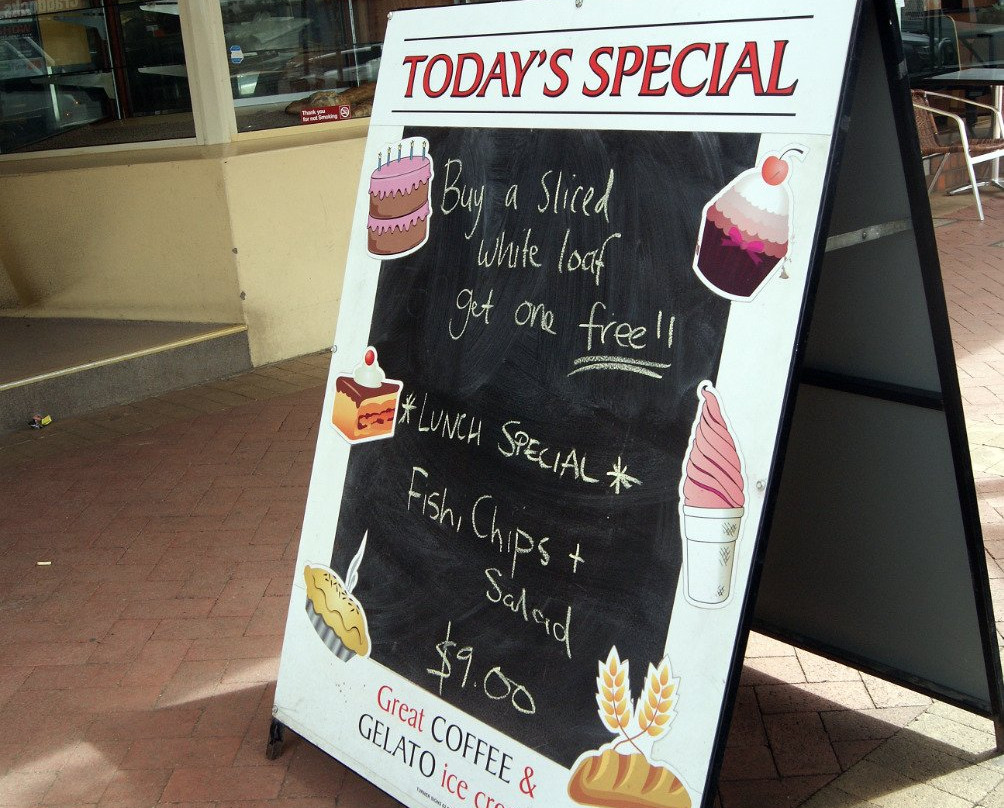 Thank you
for not Smoking
TODAY'S SPECIAL
Buy a Sliced
white loaf
get one free!!
*LUNCH SPECIAL*
Fish, Chips +
Salad
$9.00
Great COFFEE &
GELATO ice cre